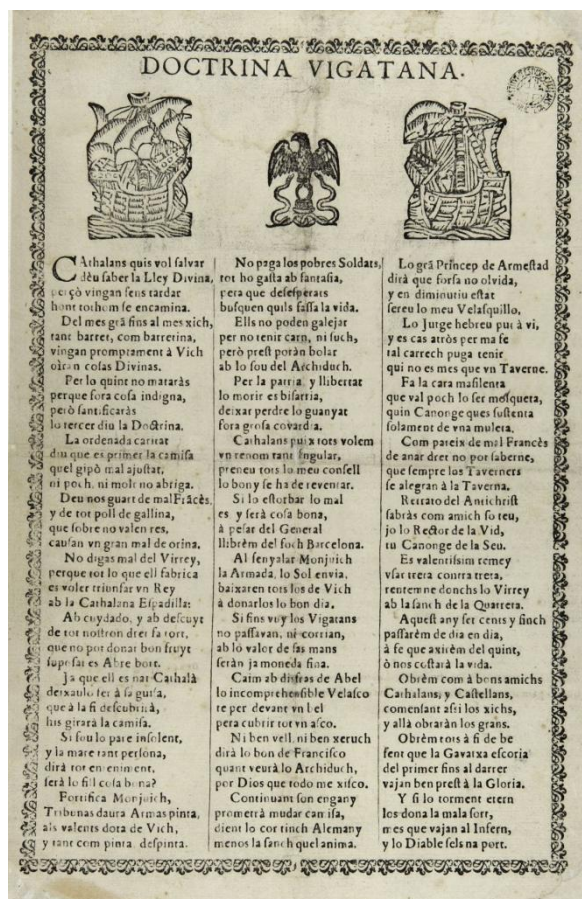 DOCTRINA VIGATANA.
CAthalans quis vol salvar
dèu saber la Lley Divina,
perçò vingan sens tardar
hont tothom se encamina.
Del mes grã fins al mes xich,
tant barret, com barretina,
vingan promptament à Vich
oiràn cosas Divinas.
Per lo quint no mataràs
perque fora cosa indigna,
però santificaràs
lo tercer diu la Doctrina.
La ordenada caritat
diu que es primer la camisa
quel gipò mal ajustat,
ni poch, ni molt no abriga.
Deu nos guart de mal Frãcès,
y de tot poll de gallina,
que sobre no valen res,
causan vn gran mal de orina.
No digas mal del Virrey,
perque tot lo que ell fabrica
es voler triunfar vn Rey
ab la Cathalana Espadilla:
Ab cuydado, y ab descuyt
de tot nostron dret fa tort,
que no por donar bon fruyt
suposat es Abre bort.
Ja que ell es nat Cathalà
deixaulo fer à sa guisa,
que à la fi descubrirà,
his girarà la camisa.
Si fou lo pare insolent,
y la mare tant persona,
dirà tot enteniment,
serà lo fill cosa bona?
Fortifica Monjuich,
Tribunas daura Armas pinta,
als valents dota de Vich,
y tant com pinta, despinta.
No paga los pobres Soldats,
tot ho gasta ab fantasia,
pera que desesperats
busquen quils fassa la vida.
Ells no poden galejar
per no tenir carn, ni such,
però prest poràn bolar
ab lo sou del Archiduch.
Per la patria, y llibertat
lo morir es bisarria,
deixar perdre lo guanyat
fora grossa covardia.
Cathalans puix tots volem
vn renom tant singular,
preneu tots lo meu consell
lo bony se ha de reventar.
Si lo estorbar lo mal
es y serà cosa bona,
à pesar del General
llibrèm del foch Barcelona.
Al senyalar Monjuich
la Armada, lo Sol envia,
baixaren tots los de Vich
à donarlos lo bon dia.
Si fins vuy los Vigatans
no passavan, ni corrian,
ab lo valor de sas mans
seràn ja moneda fina.
Caim ab disfras de Abel
lo incomprehensible Velasco
te per devant vn bel
pera cubrir tot vn asco.
Ni ben vell, ni ben xeruch
dirà lo bon de Francisco
quant veurà lo Archiduch,
por Dios que todo me xisco.
Continuant son engany
prometrà mudar camisa,
dient lo cor tinch Alemany
menos la sanch quel anima.
Lo grã Príncep de Armestad
dirà que forsa no olvida,
y en diminutiu estat
sereu lo meu Velasquillo.
Lo Jurge hebreu put à vi,
y es cas atròs per ma fe
tal carrech puga tenir
qui no es mes que vn Taverne.
Fa la cara masilenta
que val poch lo ser mosqueta,
quin Canonge ques sustenta
solament de vna muleta.
Com pateix de mal Francès
de anar dret no por saberne,
que sempre los Taverners
se alegran à la Taverna.
Retrato del Antichrist
sabràs com amich so teu,
jo lo Rector de la Vid,
tu Canonge de la Seu.
Es valentissim remey
vsar treta contra treta,
rentemne donchs lo Virrey
ab la sanch de la Quartera.
Aquest any set cents y sinch
passarèm de dia en dia,
à fe que axirèm del quint,
ò nos costarà la vida.
Obrèm com à bons amichs
Cathalans, y Castellans,
comensant assi los xichs,
y allà obraràn los grans.
Obrèm tots à fi de be
fent que la Gavatxa escoria
del primer fins al darrer
vajan ben prest à la Gloria.
Y si lo torment etern
los dona la mala sort,
mes que vajan al Infern,
y lo Diable sels na port.